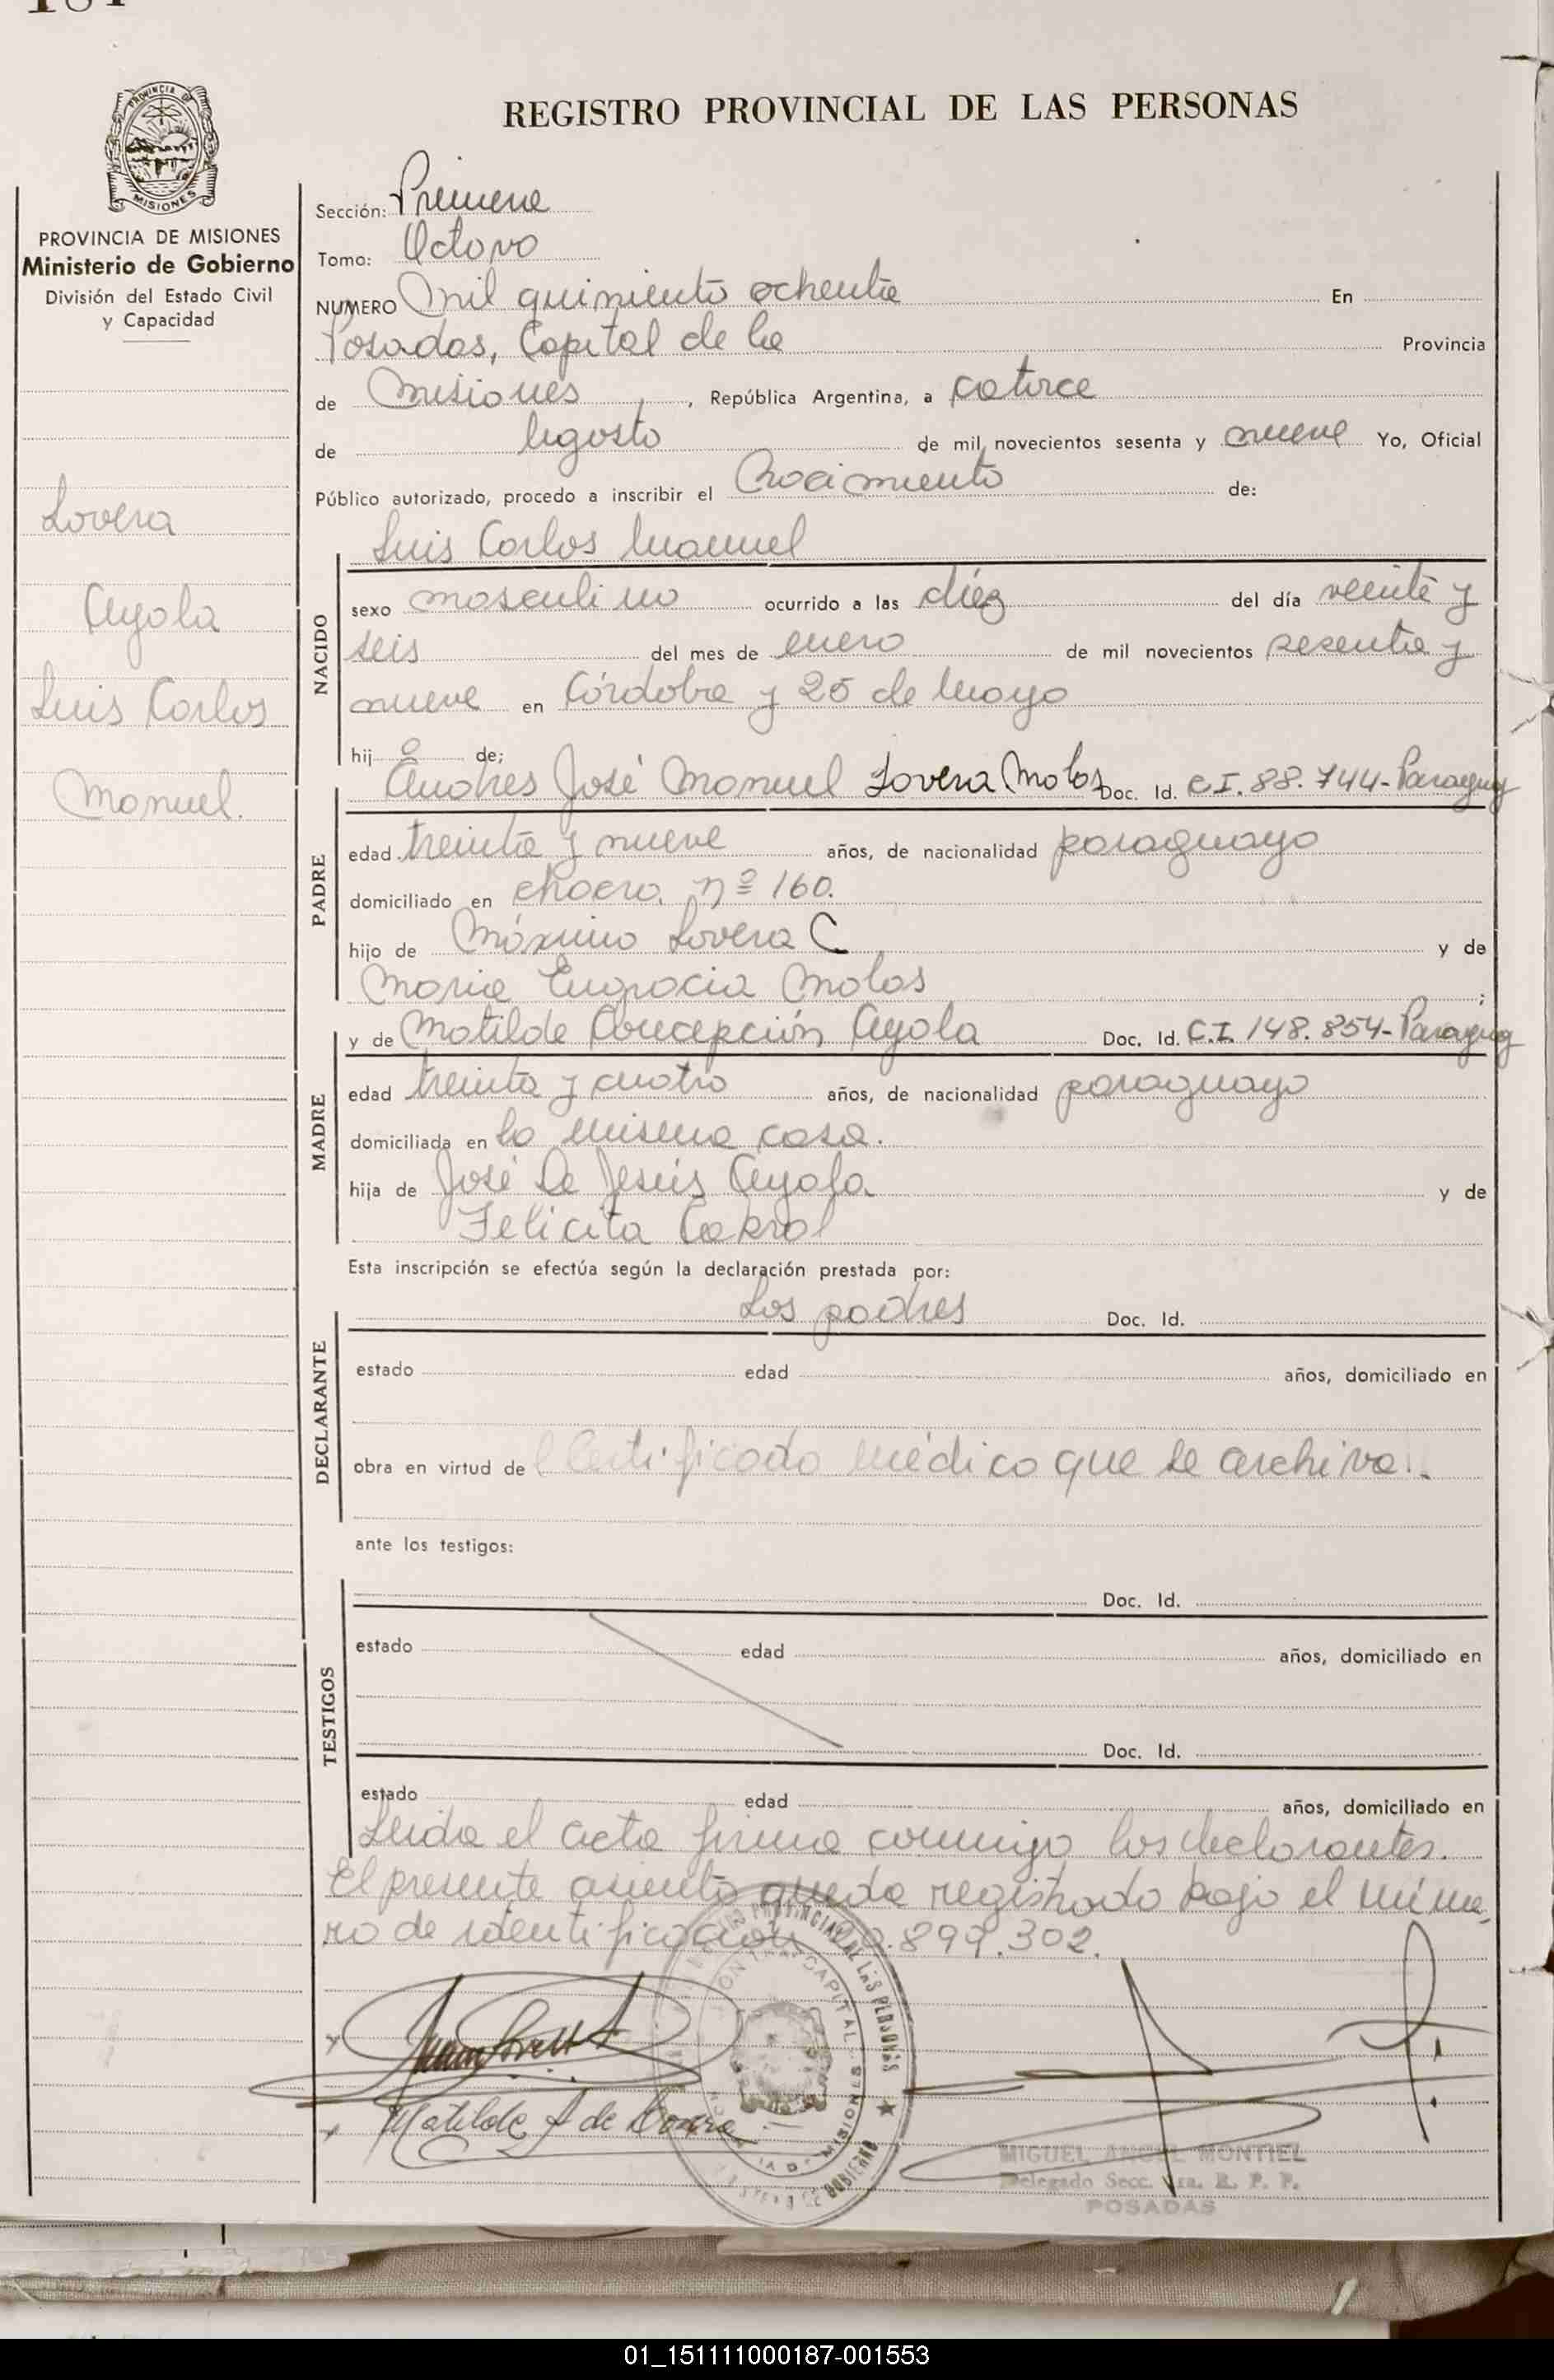 REGISTRO PROVINCIAL DE LAS PERSONAS
PROVINCIA DE
MISIONES
PROVINCIA DE MISIONES
Ministerio de Gobierno
División del Estado Civil
y Capacidad
Lovera
Ayala
Luis Carlos
Manuel.
Sección: Primera
Tomo: Octavo
NUMERO Mil quiniento ochenta En
Posadas, Capital de la Provincia
de Misiones, República Argentina, a catorce
de Agosto de mil novecientos sesenta y nueve Yo, Oficial
Público autorizado, procedo a inscribir el Nacimiento de:
Luis Carlos Manuel
NACIDO
sexo masculino ocurrido a las diez del día veinte y
seis del mes de enero de mil novecientos sesenta y
nueve en Córdoba y 25 de Mayo
hijo de;
PADRE
Andres José Manuel Lovera Molas Doc. Id. C.I. 88.744-Paraguay
edad treinta y nueve años, de nacionalidad paraguayo
domiciliado en chaco nº 160.
hijo de Máximo Lovera C y de
Maria Engracia Molas;
MADRE
y de Matilde Concepción Ayala Doc. Id. C.I. 148.854-Paraguay
edad treinta y cuatro años, de nacionalidad paraguaya
domiciliada en la misma casa.
hija de José De Jesús Ayala y de
Felicita Cabral
Esta inscripción se efectúa según la declaración prestada por:
DECLARANTE
Los padres Doc. Id.
estado edad años, domiciliado en
obra en virtud del Certificado médico que se archiva.
ante los testigos:
TESTIGOS
Doc. Id.
estado edad años, domiciliado en
Doc. Id.
estado edad años, domiciliado en
Leida el acta firma conmigo los declarantes.
El presente asiento queda registrado bajo el núme
ro de identificación 20.899.302.
Matilde A de Lovera
MIGUEL ANGEL MONTIEL
Delegado Secc. 1ra. R. P. P.
POSADAS
01_151111000187-001553